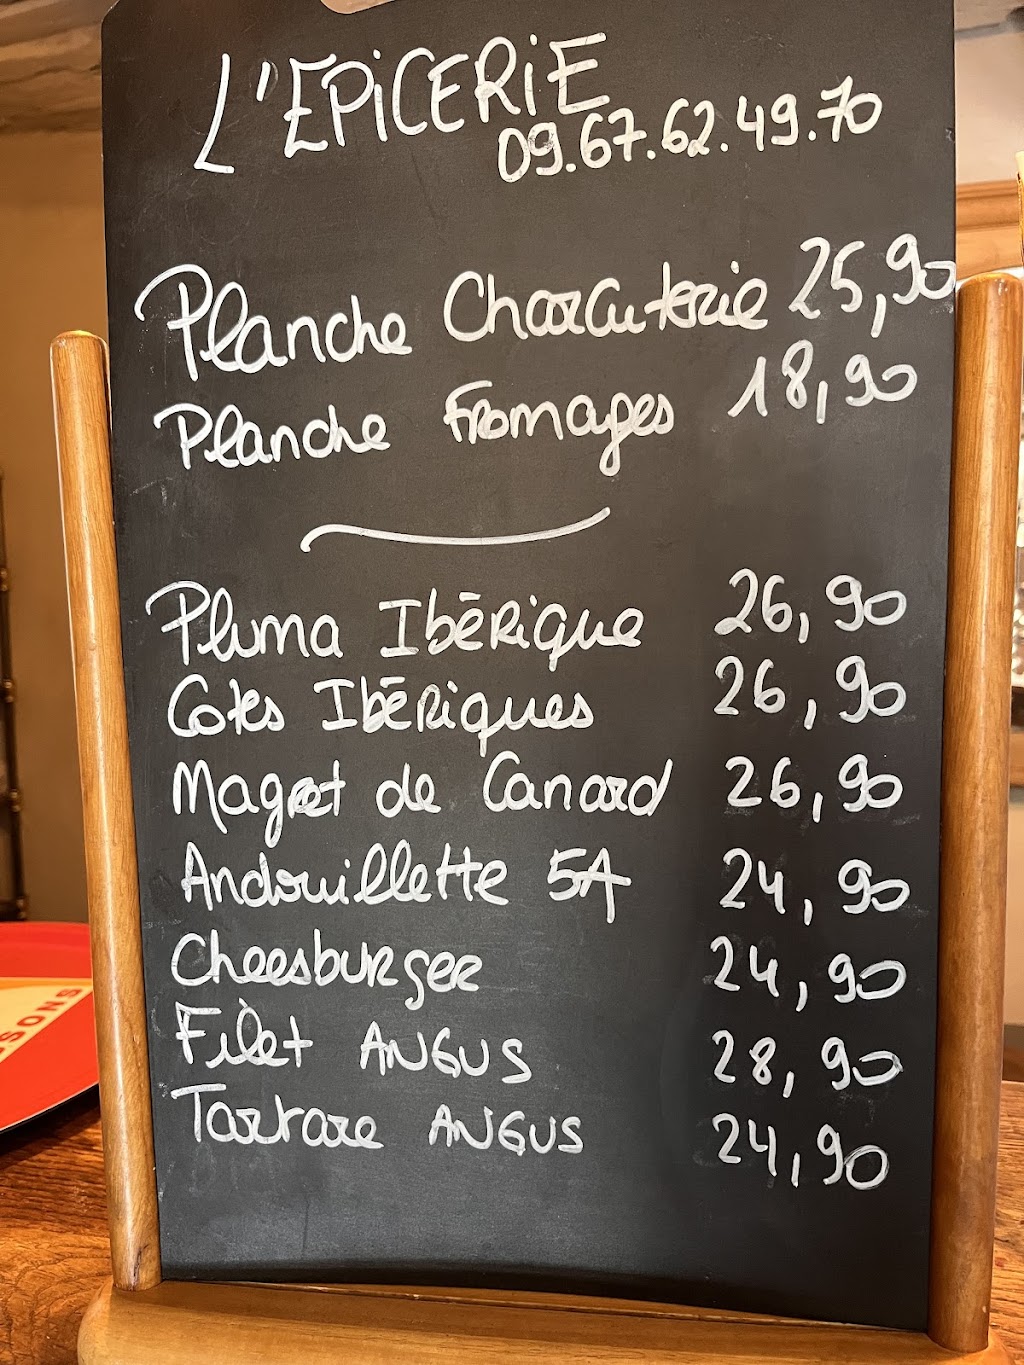 L'EPiCERiE
09.67.62.49.70
Planche Charcuterie 25,90
Planche Fromages 18,90
Pluma Ibērique 26,90
Cotes Ibēriques 26,90
Magret de Canard 26,90
Andouillette 5A 24,90
Cheesburger 24,90
Filet ANGUS 28,90
Tartare ANGUS 24,90
SONS